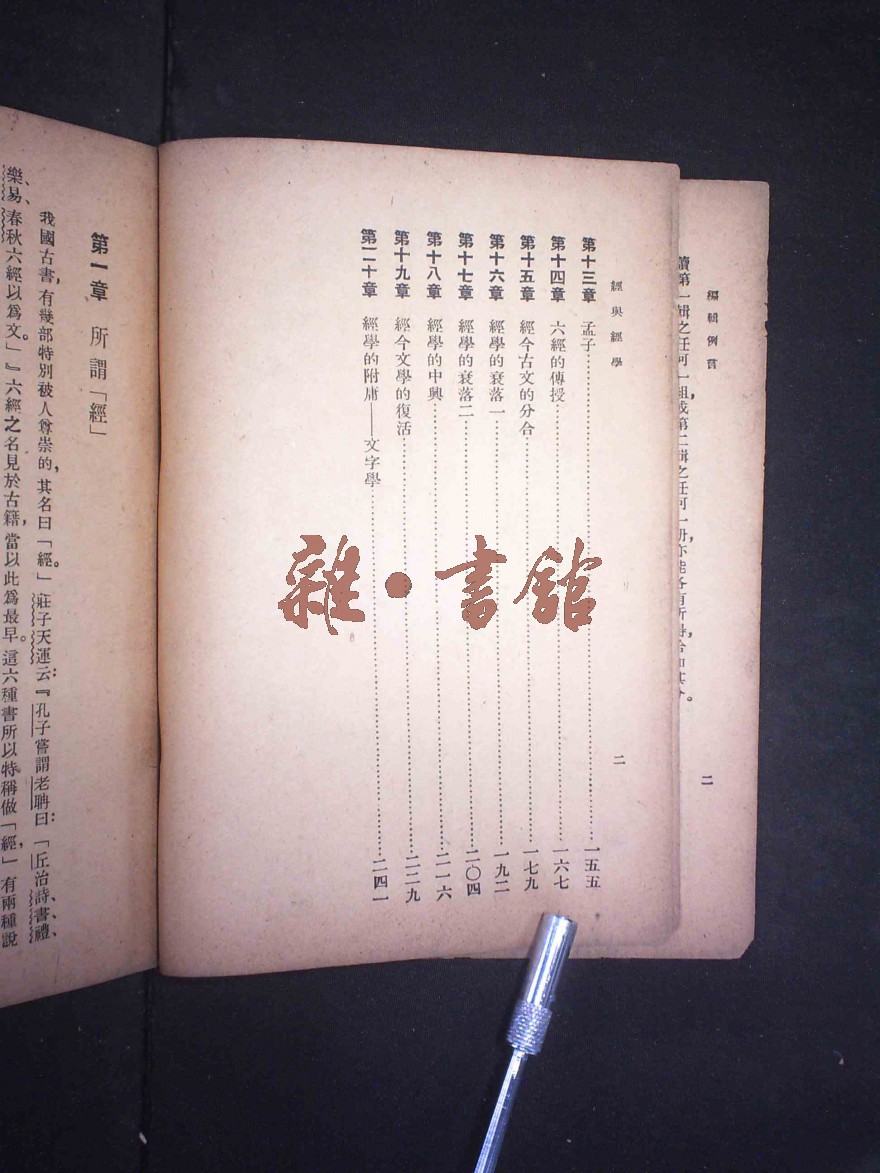 編輯例言
讀第一輯之任何一組，或第二輯之任何一册，亦能各有所
二
經與經學
第十三章　孟子……一五五
第十四章　六經的傳授……一六七
第十五章　經今古文的分合……一七九
第十六章　經學的衰落一……一九二
第十七章　經學的衰落二……二〇四
第十八章　經學的中興……二一六
第十九章　經今文學的復活……二二九
第二十章　經學的附庸——文字學……二四一
二
雜·書館
第一章　所謂「經」
我國古書，有幾部特別被人尊崇的，其名曰「經」。莊子天運云：『孔子嘗謂老聃曰：「丘治詩、書、禮、
樂、易、春秋六經以爲文」』。六經之名見於古籍，當以此爲最早。這六種書所以特稱做「經」，有兩種說